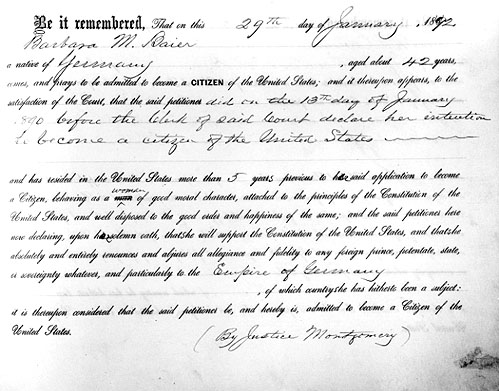 Be it remembered, That on this 29th day of January, 1892
Barbara M. Baier
a native of Germany, aged about 42 years,
comes, and prays to be admitted to become a CITIZEN of the United States; and it thereupon appears, to the
satisfaction of the Court, that the said petitioner did on the 13th day of January
1890 before the Clerk of said Court declare her intention
to become a citizen of the United States
and has resided in the United States more than 5 years previous to her said application to become
a Citizen, behaving as a woman of good moral character, attached to the principles of the Constitution of the
United States, and well disposed to the good order and happiness of the same; and the said petitioner here
now declaring, upon her solemn oath, that she will support the Constitution of the United States, and that she
absolutely and entirely renounces and abjures all allegiance and fidelity to any foreign prince, potentate, state,
or sovereignty whatever, and particularly to the Empire of Germany
, of which country she has hitherto been a subject:
it is thereupon considered that the said petitioner be, and hereby is, admitted to become a Citizen of the
United States.
(By Justice Montgomery)